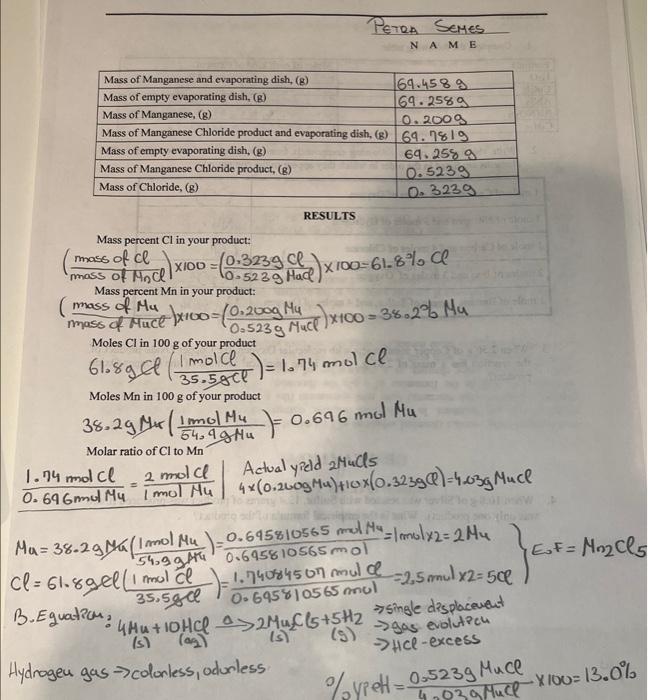 PETRA SEMES
N A M E
Mass of Manganese and evaporating dish, (g) 69.458 g
Mass of empty evaporating dish, (g) 69.258 g
Mass of Manganese, (g) 0.200 g
Mass of Manganese Chloride product and evaporating dish, (g) 69.781 g
Mass of empty evaporating dish, (g) 69.258 g
Mass of Manganese Chloride product, (g) 0.523 g
Mass of Chloride, (g) 0.323 g
RESULTS
Mass percent Cl in your product:
(mass of Cl / mass of MnCl) x100 = (0.323g Cl / 0.523g MnCl) x 100 = 61.8% Cl
Mass percent Mn in your product:
(mass of Mn / mass of MnCl) x100 = (0.200g Mn / 0.523g MnCl) x 100 = 38.2% Mn
Moles Cl in 100 g of your product
61.8g Cl (1 mol Cl / 35.5g Cl) = 1.74 mol Cl
Moles Mn in 100 g of your product
38.2g Mn (1 mol Mn / 54.9g Mn) = 0.696 mol Mn
Molar ratio of Cl to Mn
1.74 mol Cl / 0.696 mol Mn = 2 mol Cl / 1 mol Mn
Actual yield 2MnCl5
4x(0.200g Mn)+10x(0.323g Cl)=4.03g MnCl
Mn = 38.2g Mn (1 mol Mn / 54.9g Mn) = 0.695810565 mol Mn / 0.695810565 mol = 1 mol x2 = 2Mn
Cl = 61.8g Cl (1 mol Cl / 35.5g Cl) = 1.74084507 mol Cl / 0.695810565 mol = 2,5 mol x2 = 5Cl
} E.F = Mn2Cl5
B. Equation: 4Mn + 10HCl Δ→ 2Mn2Cl5 + 5H2
(s) (aq) (s) (g)
→ single displacement
→ gas evolution
→ HCl - excess
Hydrogen gas → colorless, odorless
% yield = 0.523g MnCl / 4.03g MnCl x100 = 13.0%